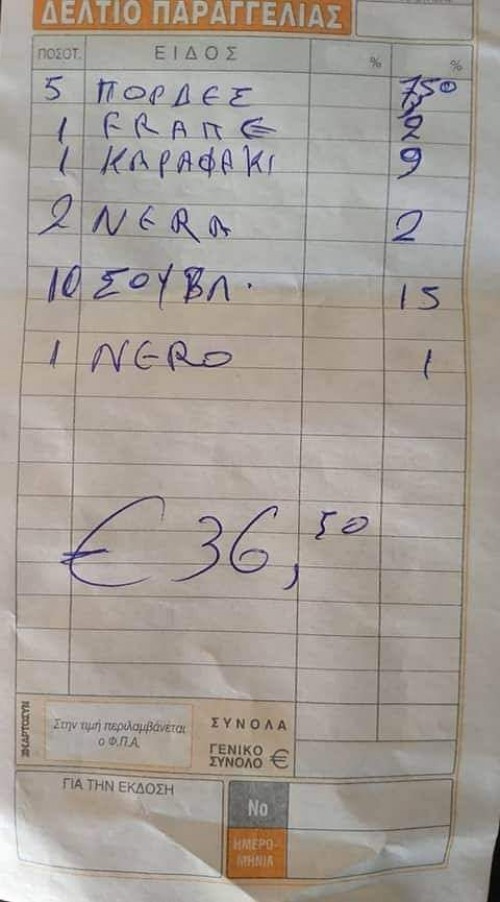 ΔΕΛΤΙΟ ΠΑΡΑΓΓΕΛΙΑΣ
ΠΟΣΟΤ. ΕΙΔΟΣ % %
5 ΠΟΡΔΕΣ 750
1 FRAΠΕ 2
1 ΚΑΡΑΦΑΚΙ 9
2 NERA 2
10 ΣΟΥΒΛ. 15
1 NERO 1
€ 36,50
Στην τιμή περιλαμβάνεται
ο Φ.Π.Α.
ΣΥΝΟΛΑ
ΓΕΝΙΚΟ
ΣΥΝΟΛΟ €
ΓΙΑ ΤΗΝ ΕΚΔΟΣΗ
Νο
ΗΜΕΡΟ-
ΜΗΝΙΑ